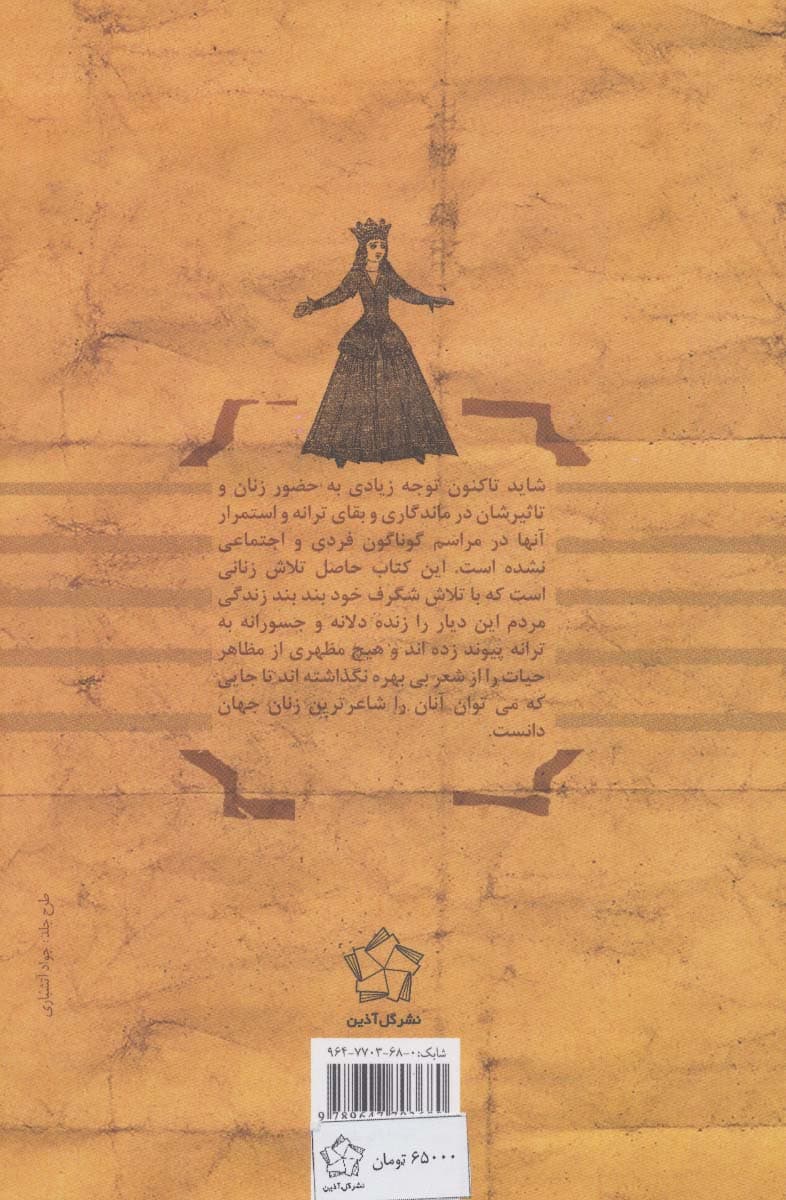 شاید تاکنون توجه زیادی به حضور زنان و
تاثیرشان در ماندگاری و بقای ترانه و استمرار
آنها در مراسم گوناگون فردی و اجتماعی
نشده است. این کتاب حاصل تلاش زنانی
است که با تلاش شگرف خود بند بند زندگی
مردم این دیار را زنده دلانه و جسورانه به
ترانه پیوند زده اند و هیچ مظهری از مظاهر
حیات را از شعر بی بهره نگذاشته اند تا جایی
که می توان آنان را شاعرترین زنان جهان
دانست.
طرح جلد: جواد آتشباری
نشر گل آذین
شابک: ۹۶۴-۷۷۰۳-۶۸-۰
۶۵۰۰۰ تومان
نشر گل آذین